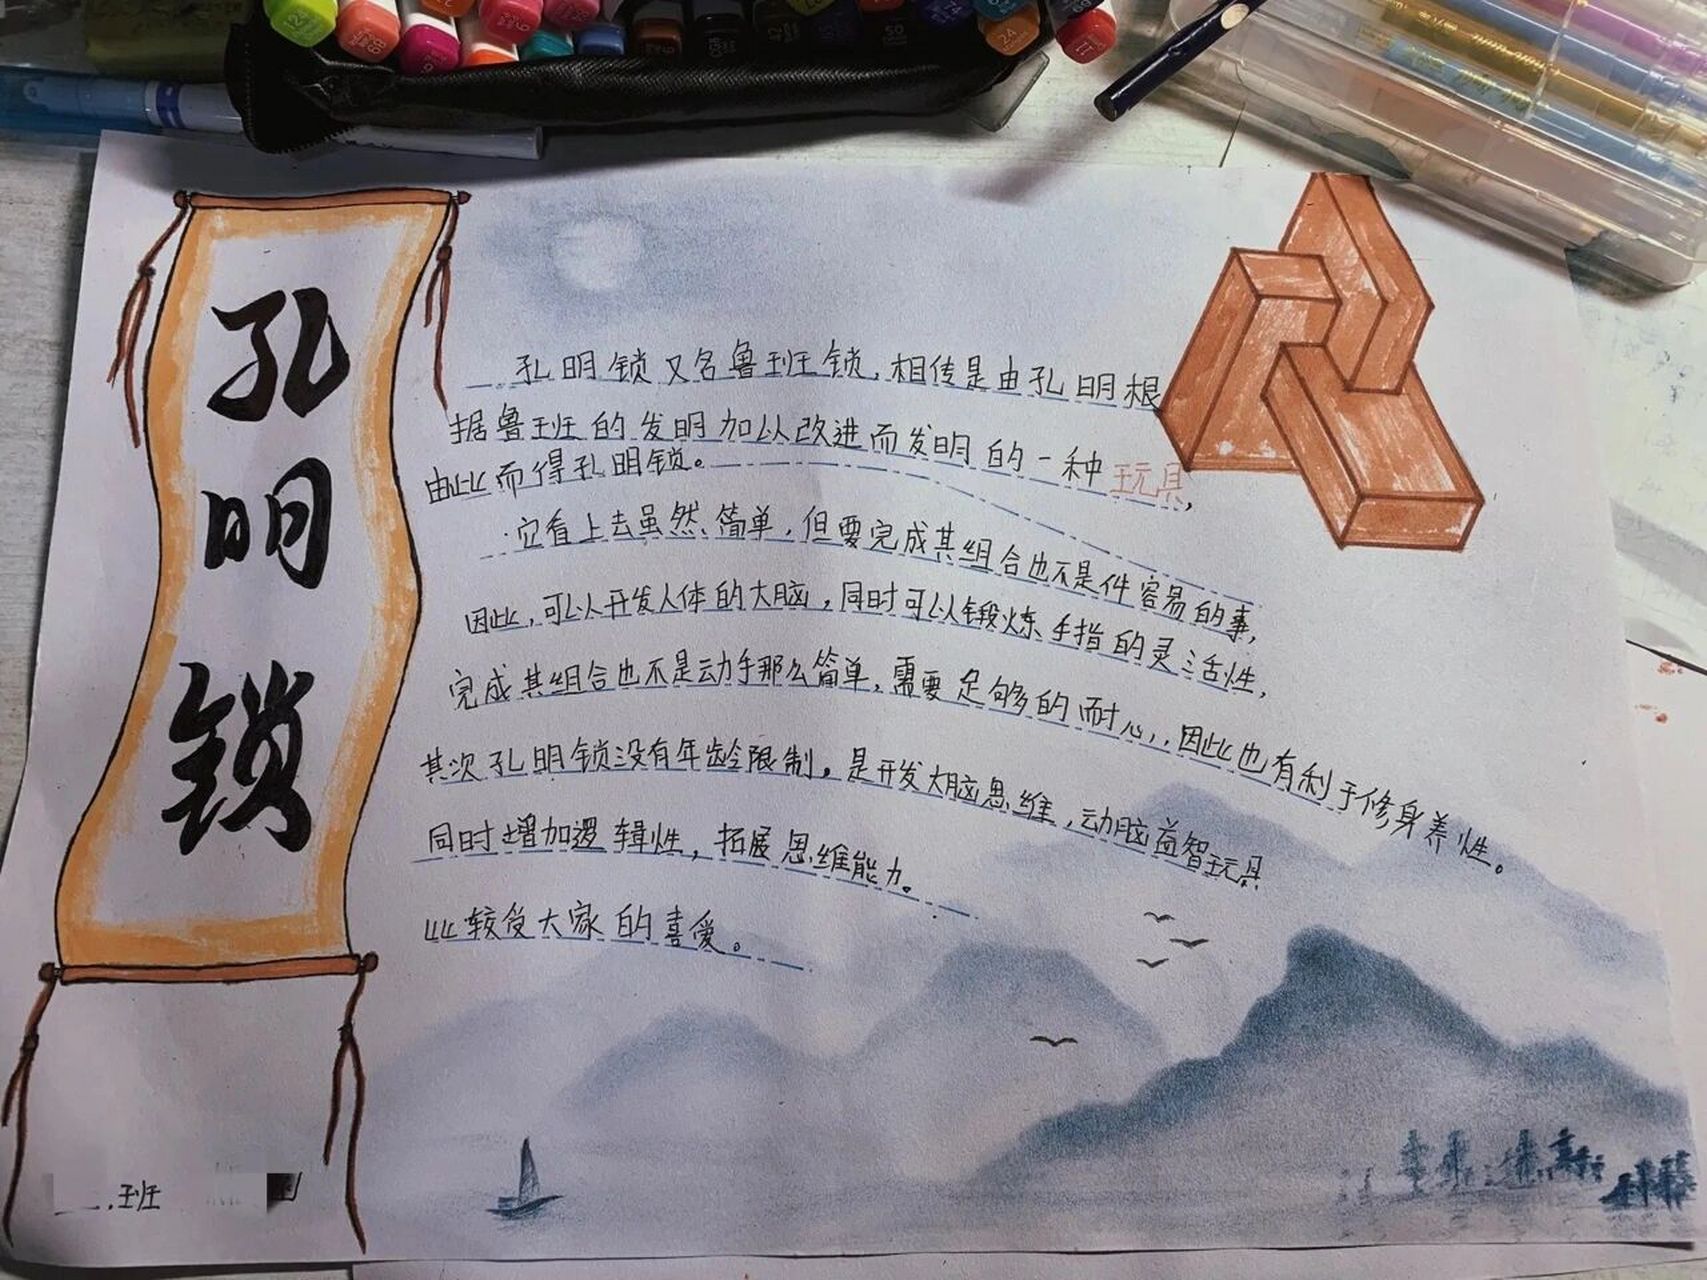 孔明锁
孔明锁又名鲁班锁，相传是由孔明根
据鲁班的发明加以改进而发明的一种玩具，
由此而得孔明锁。
它看上去虽然简单，但要完成其组合也不是件容易的事，
因此，可以开发人体的大脑，同时可以锻炼手指的灵活性，
完成其组合也不是动手那么简单，需要足够的耐心，因此也有利于修身养性。
其次孔明锁没有年龄限制。是开发大脑思维，动脑益智玩具
同时增加逻辑性，拓展思维能力。
比较受大家的喜爱。
班